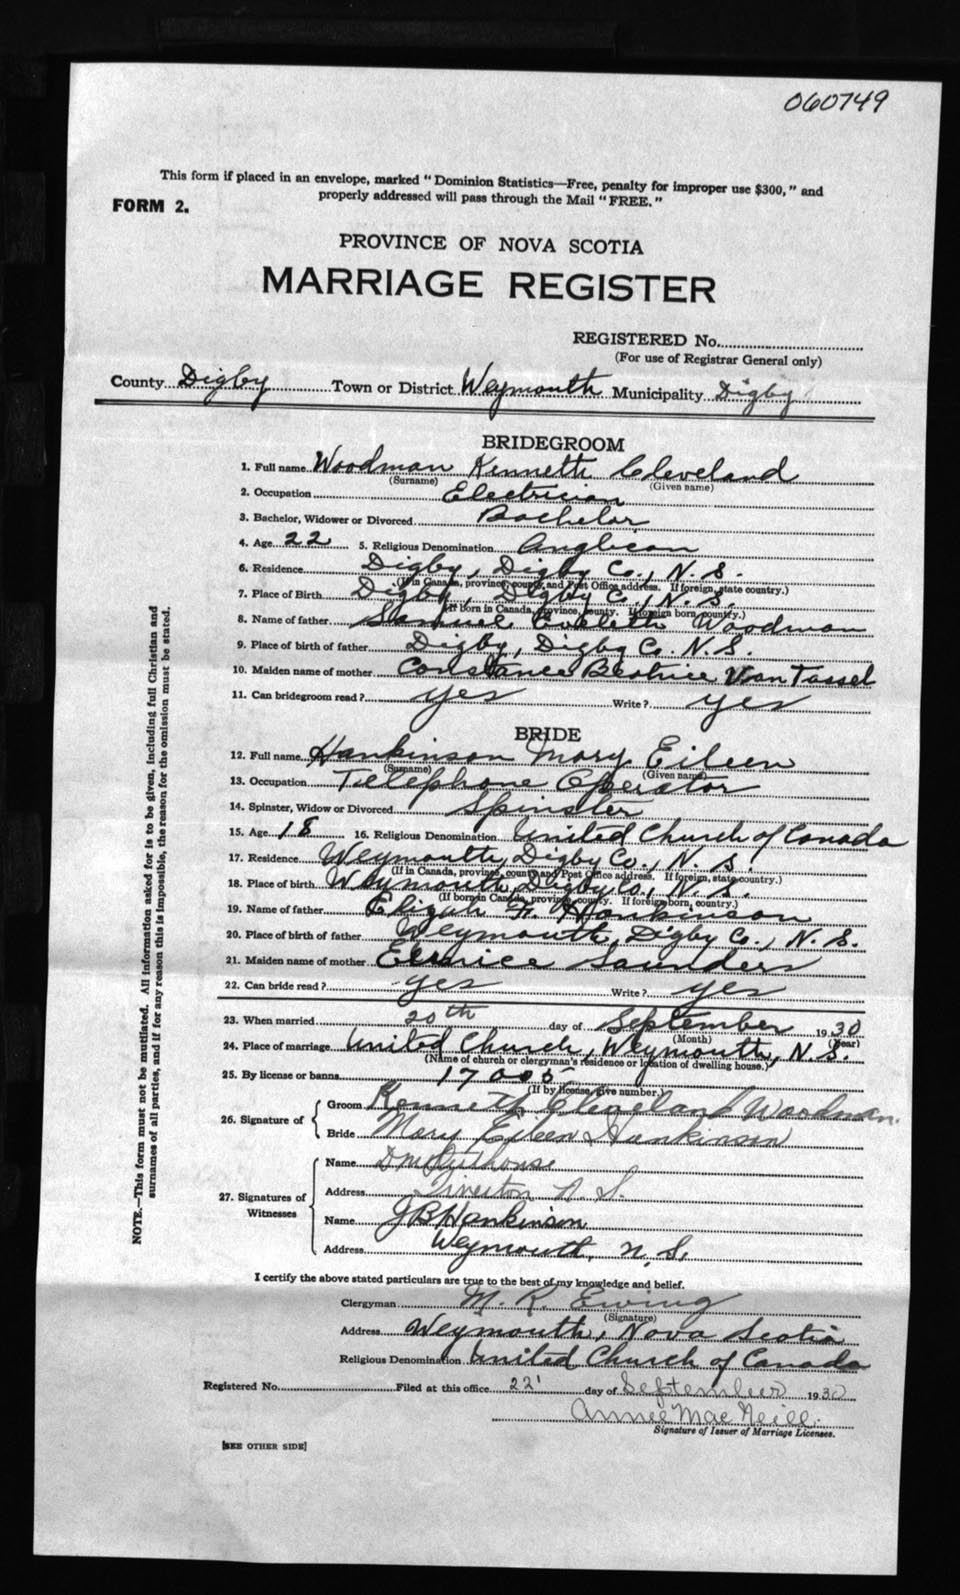 060749
This form if placed in an envelope, marked "Dominion Statistics—Free, penalty for improper use $300," and
properly addressed will pass through the Mail "FREE."
FORM 2.
PROVINCE OF NOVA SCOTIA
MARRIAGE REGISTER
REGISTERED No.
(For use of Registrar General only)
County Digby Town or District Weymouth Municipality Digby
BRIDEGROOM
1. Full name Woodman Kenneth Cleveland
(Surname) (Given name)
2. Occupation Electrician
3. Bachelor, Widower or Divorced Bachelor
4. Age 22 5. Religious Denomination Anglican
6. Residence Digby, Digby Co., N.S.
(If in Canada, province, county and Post Office address. If foreign, state country.)
7. Place of Birth Digby, Digby Co., N.S.
(If born in Canada, province, county. If foreign born, country.)
8. Name of father Samuel Woodman
9. Place of birth of father Digby, Digby Co. N.S.
10. Maiden name of mother Constance Beatrice Van Tassel
11. Can bridegroom read? yes Write? yes
BRIDE
12. Full name Hankinson Mary Eileen
(Surname) (Given name)
13. Occupation Telephone Operator
14. Spinster, Widow or Divorced Spinster
15. Age 18 16. Religious Denomination United Church of Canada
17. Residence Weymouth, Digby Co., N.S.
(If in Canada, province, county and Post Office address. If foreign, state country.)
18. Place of birth Weymouth, Digby Co., N.S.
(If born in Canada, province, county. If foreign born, country.)
19. Name of father Elijah F. Hankinson
20. Place of birth of father Weymouth, Digby Co., N.S.
21. Maiden name of mother Eunice Saunders
22. Can bride read? yes Write? yes
23. When married 20th day of September 1930
(Month) (Year)
24. Place of marriage United Church, Weymouth, N.S.
(Name of church or clergyman's residence or location of dwelling house.)
25. By license or banns 17005
(If by license, give number.)
26. Signature of
Groom Kenneth Cleveland Woodman.
Bride Mary Eileen Hankinson
27. Signatures of Witnesses
Name
Address Tiverton N.S.
Name J B Hankinson
Address Weymouth, N.S.
I certify the above stated particulars are true to the best of my knowledge and belief.
Clergyman M. R. Ewing
(Signature)
Address Weymouth, Nova Scotia
Religious Denomination United Church of Canada
Registered No. Filed at this office 22 day of September 1930
Annie MacNeill.
Signature of Issuer of Marriage Licenses.
[SEE OTHER SIDE]
NOTE.—This form must not be mutilated. All information asked for is to be given, including full Christian and
surnames of all parties, and if for any reason this is impossible, the reason for the omission must be stated.